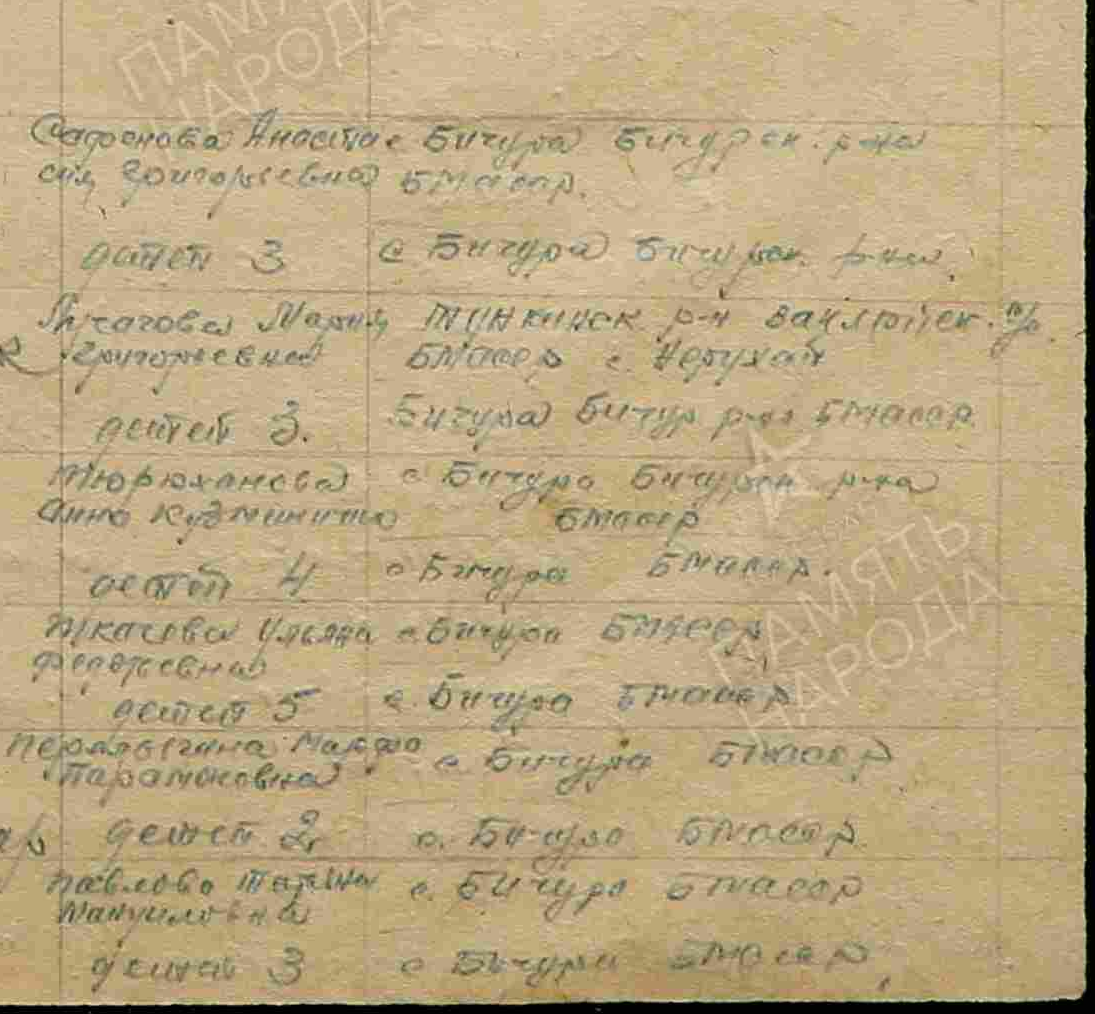 ПАМЯТЬ
НАРОДА
Сафонова Анаста с Бичура Бичурск. р-на
сия Григорьевна БМАССР.
детей 3 с Бичура Бичурск. р-на.
Мария Тункинск р-н
Григорьевна БМАССР с.
детей 3. Бичура Бичур р-на БМАССР
Тюрюханова с Бичура Бичурск р-на
Анна Кузминична БМАССР
детей 4 с Бичура БМАССР.
Ткачова Ульяна с Бичура БМАССР
детей 5 с. Бичура БМАССР
Перелыгина Марфа с. Бичура БМАССР
Парамоновна
детей 2 с. Бичура БМАССР
Павлова Татьяна с. Бичура БМАССР
Мануиловна
детей 3 с Бичура БМАССР
ПАМЯТЬ
НАРОДА